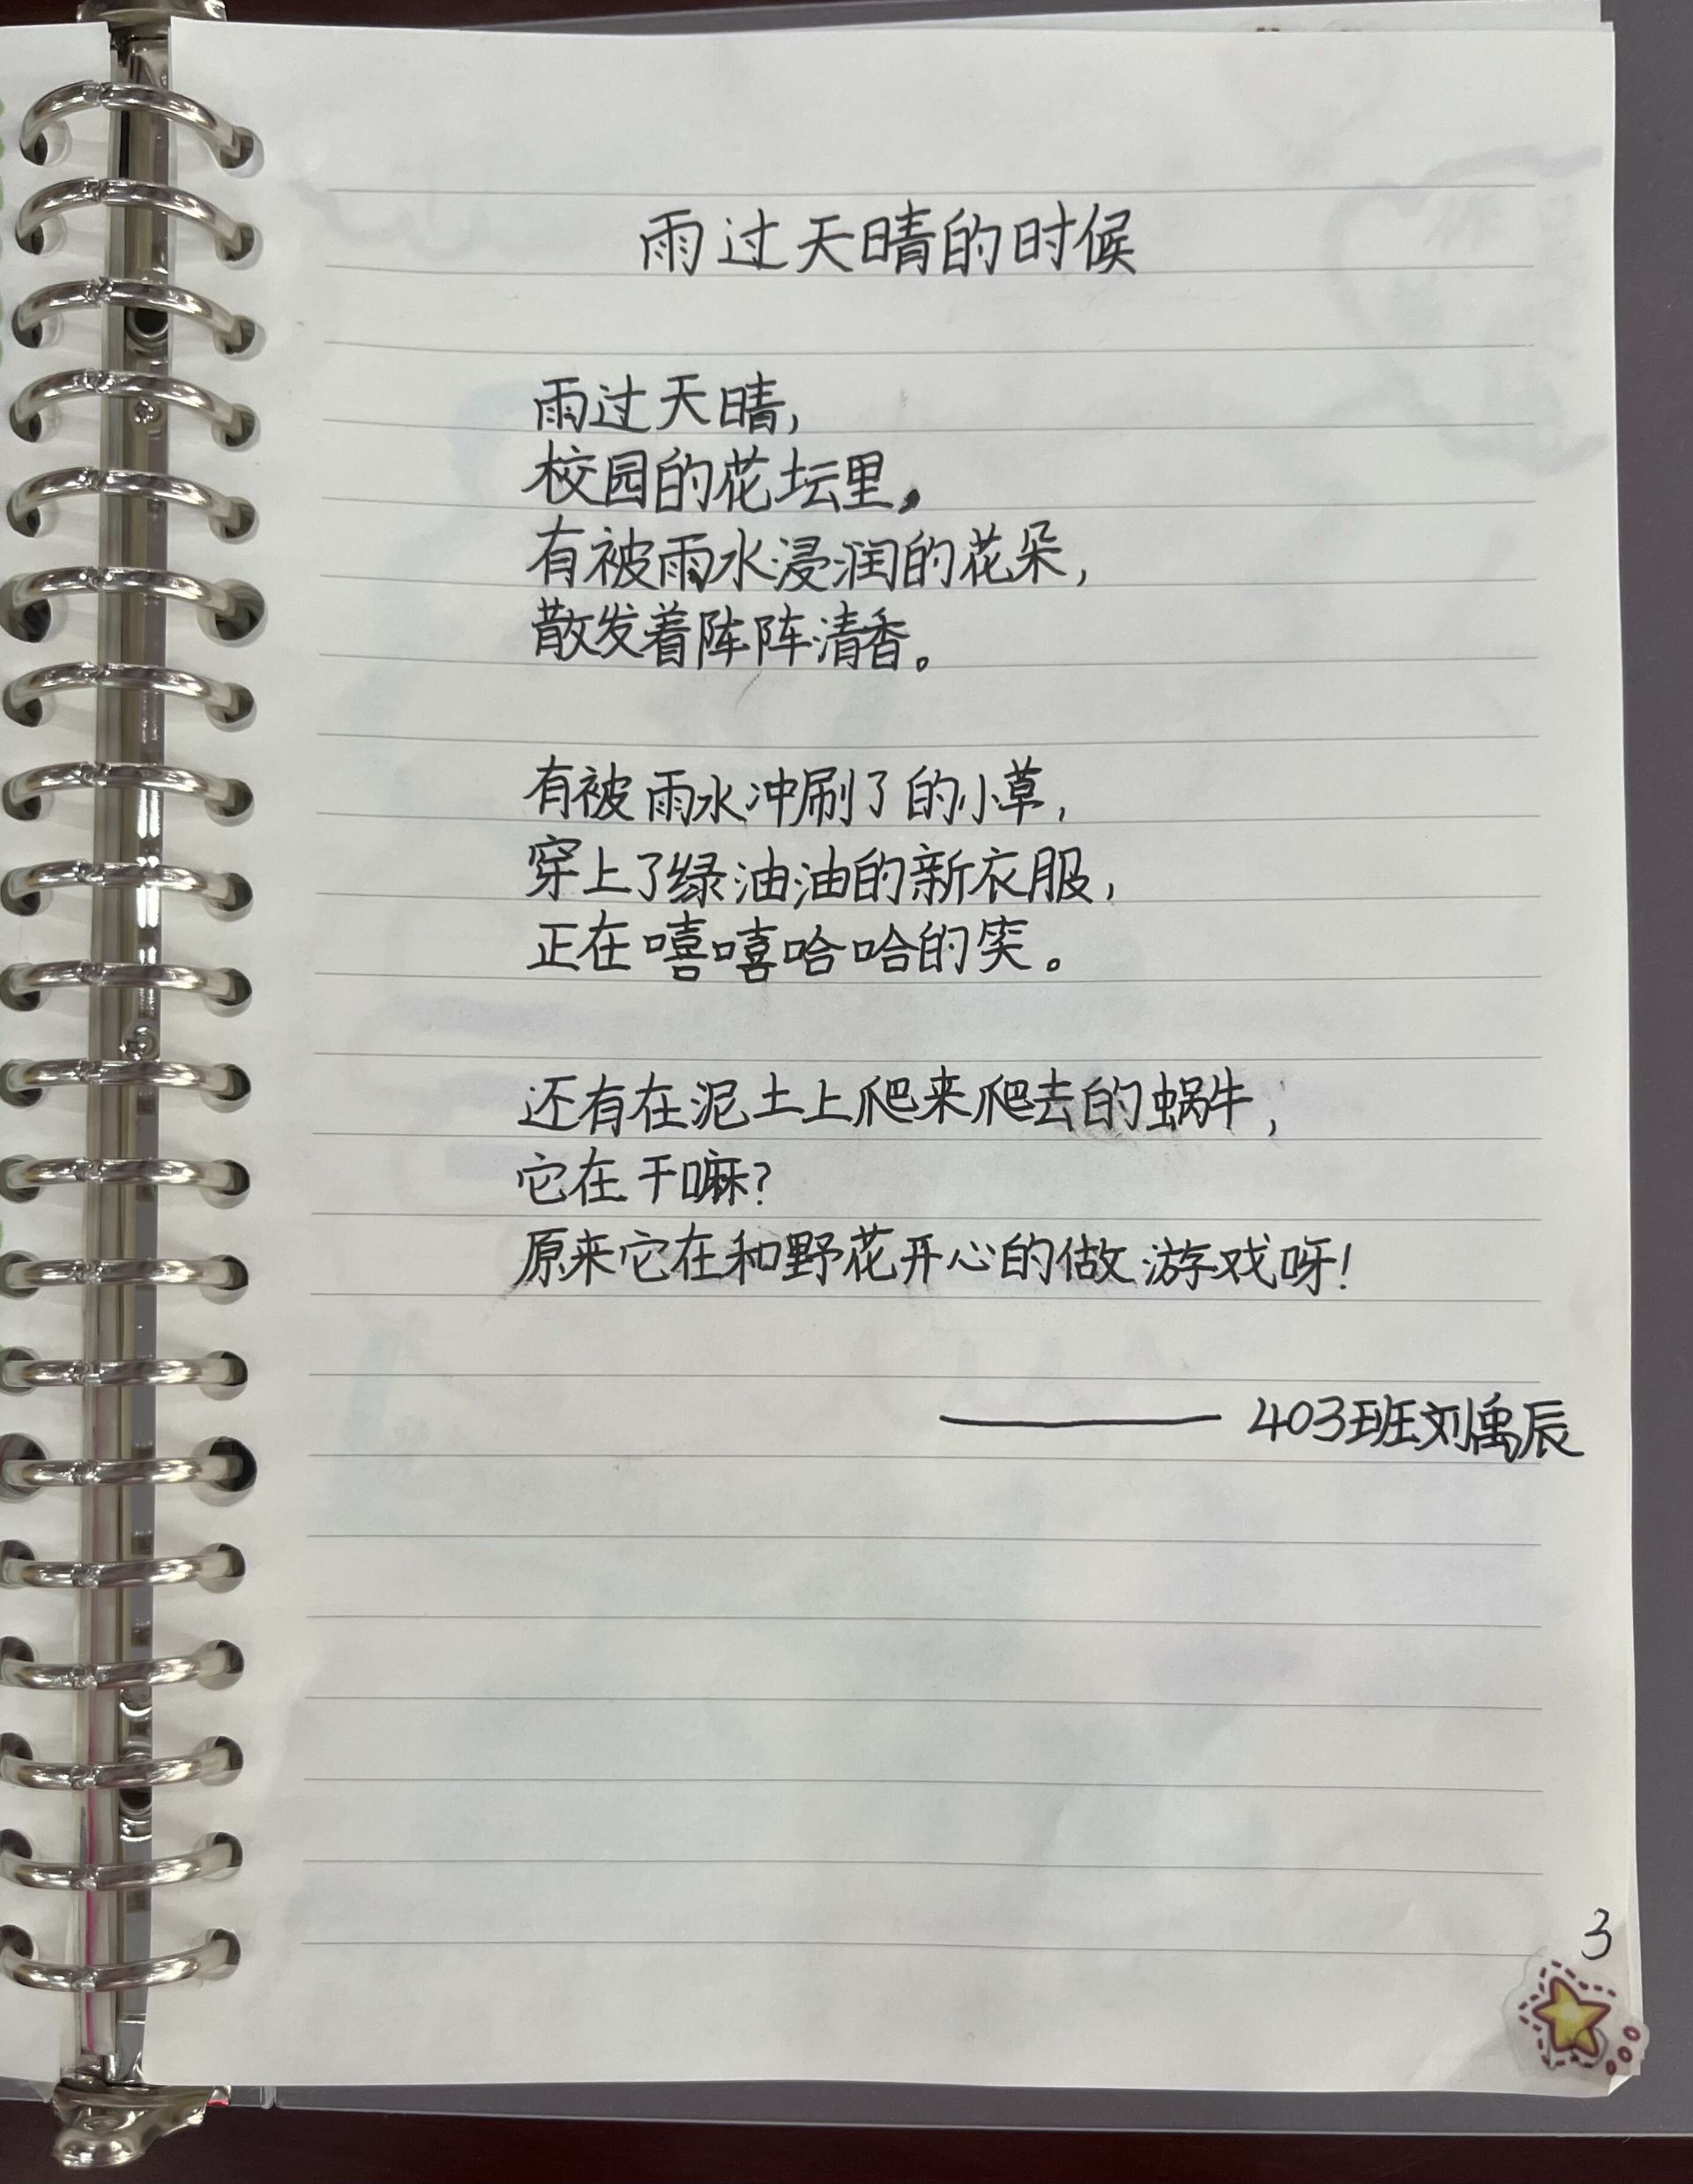 雨过天晴的时候
雨过天晴，
校园的花坛里，
有被雨水浸润的花朵，
散发着阵阵清香。
有被雨水冲刷了的小草，
穿上了绿油油的新衣服，
正在嘻嘻哈哈的笑。
还有在泥土上爬来爬去的蜗牛，
它在干嘛？
原来它在和野花开心的做游戏呀！
——403班刘禹辰
3